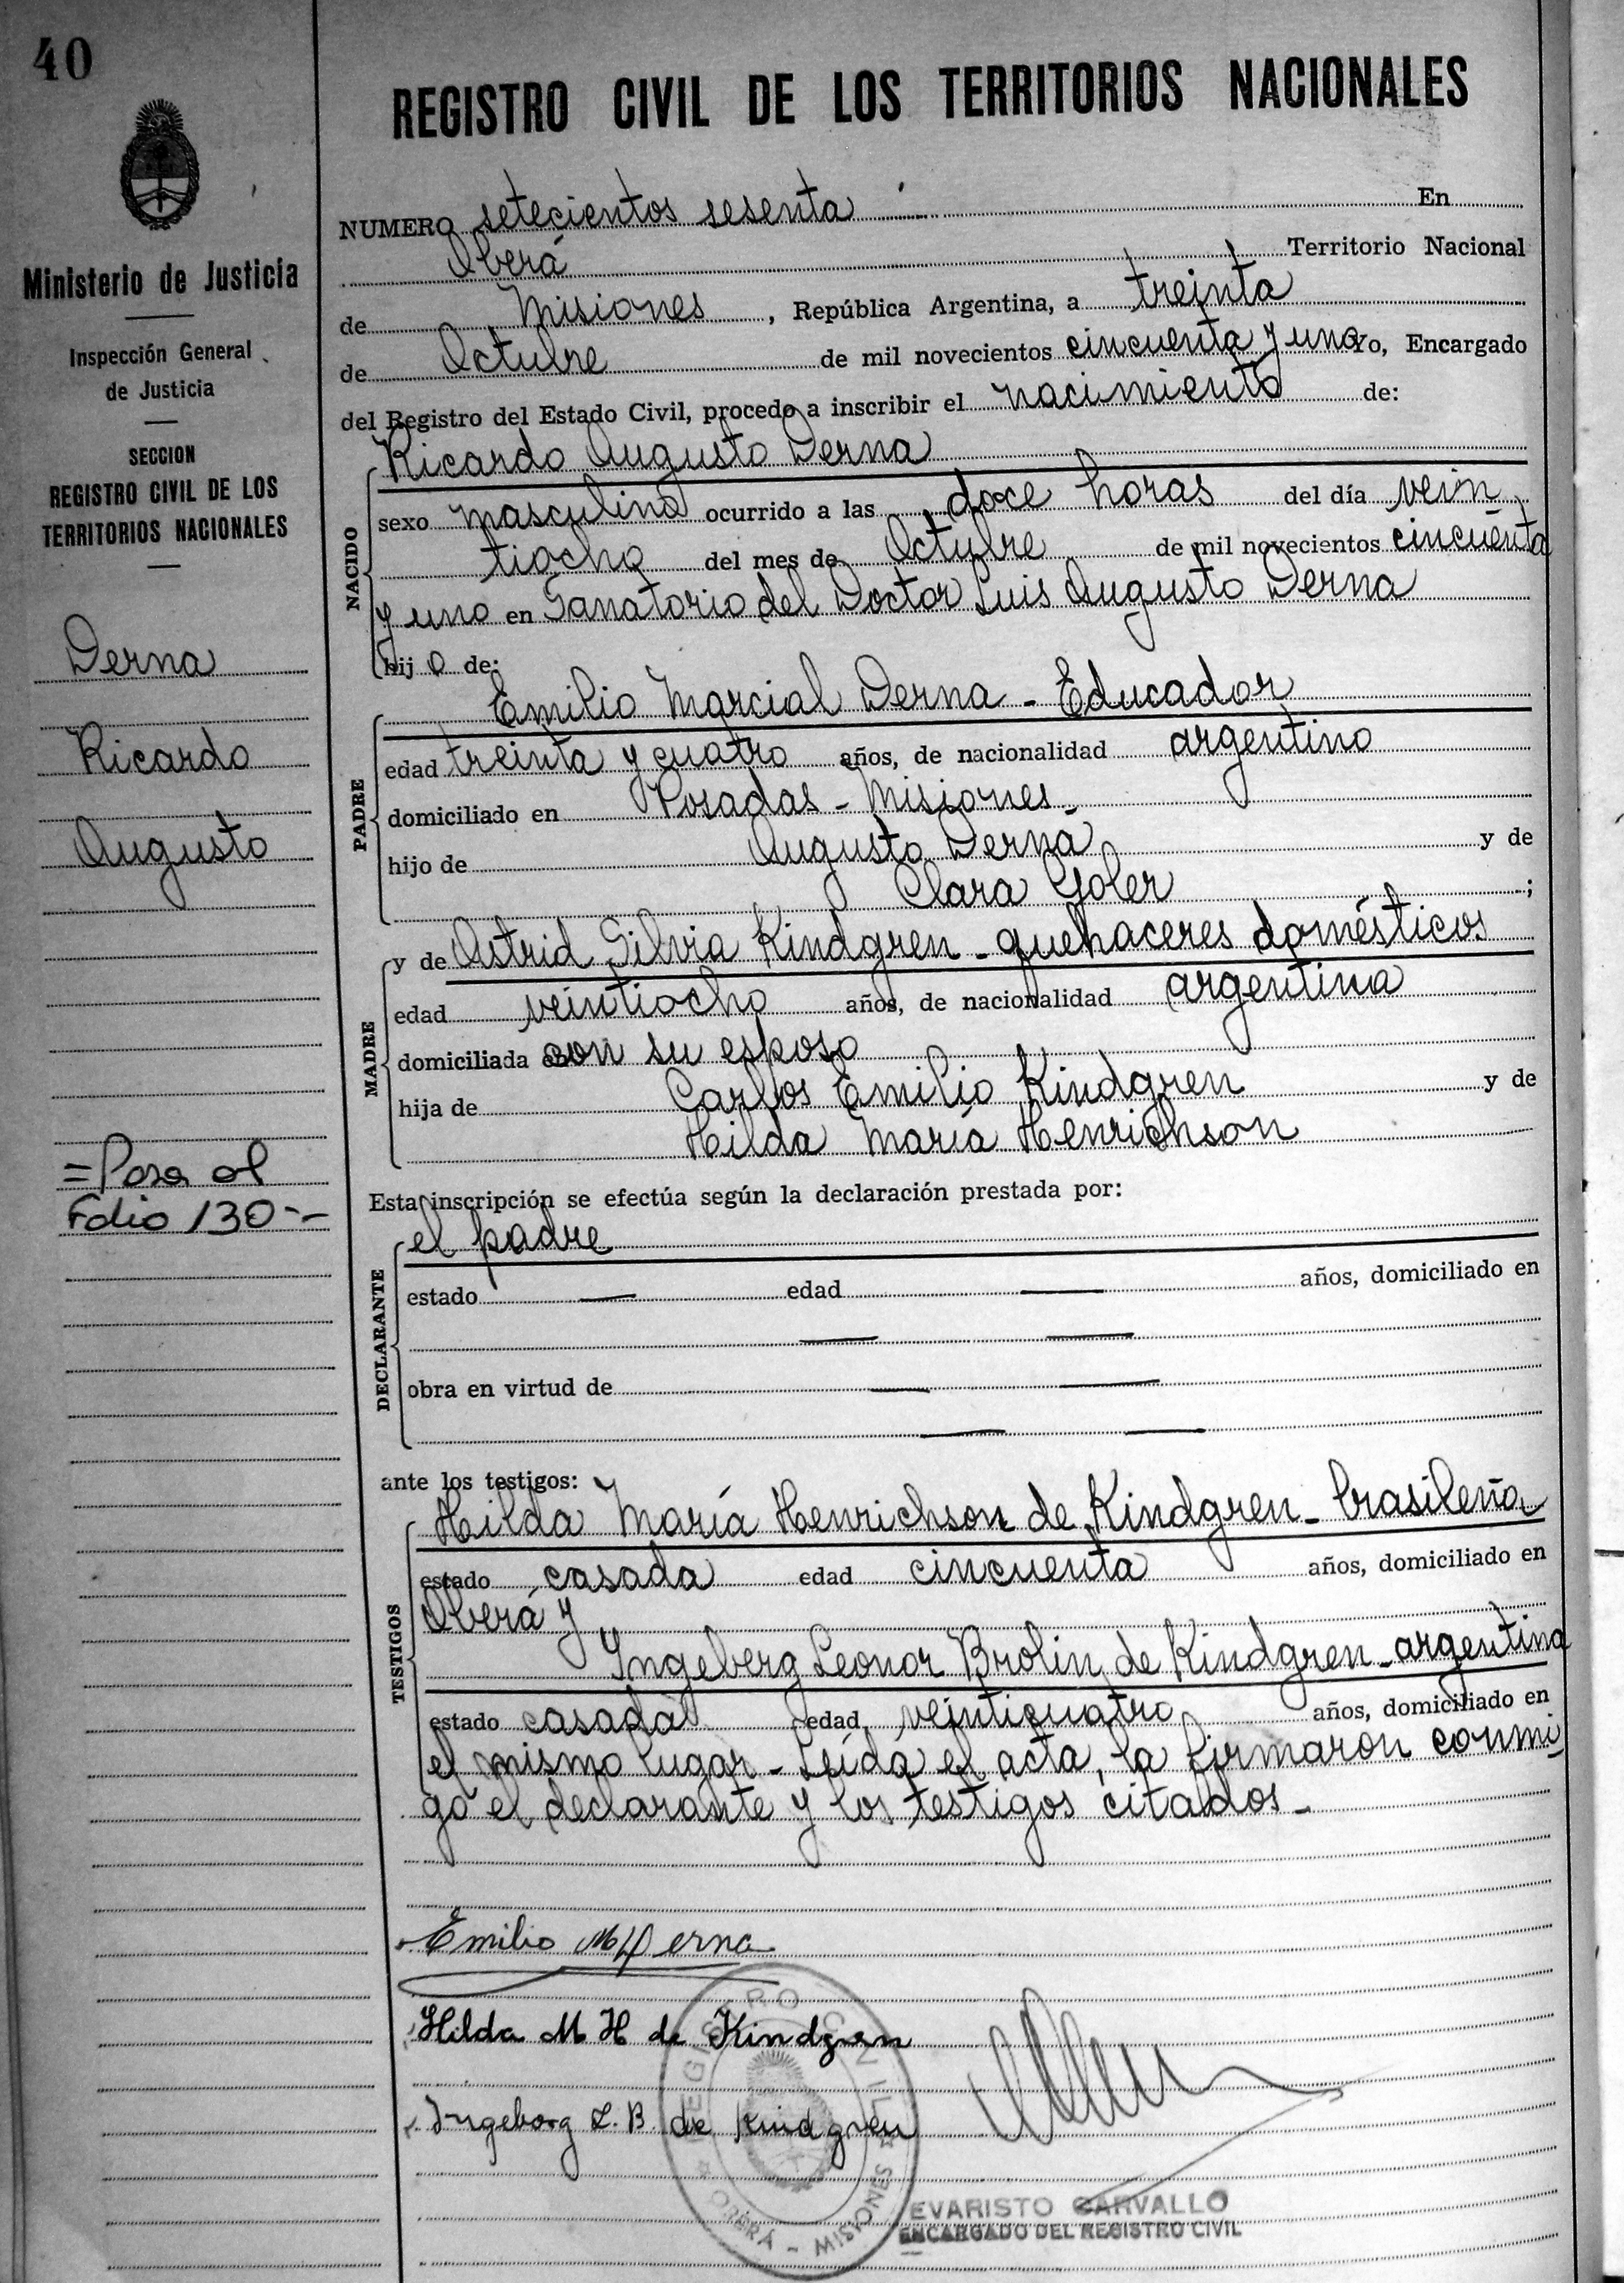 40
REGISTRO CIVIL DE LOS TERRITORIOS NACIONALES
Ministerio de Justicia
Inspección General
de Justicia
SECCION
REGISTRO CIVIL DE LOS
TERRITORIOS NACIONALES
Derna
Ricardo
Augusto
=Pasa al
Folio 130--
NUMERO setecientos sesenta En
Oberá Territorio Nacional
de Misiones, República Argentina, a treinta
de Octubre de mil novecientos cincuenta y uno Yo, Encargado
del Registro del Estado Civil, procedo a inscribir el nacimiento de:
NACIDO
Ricardo Augusto Derna
sexo masculino ocurrido a las doce horas del día vein
tiocho del mes de Octubre de mil novecientos cincuenta
y uno en Sanatorio del Doctor Luis Augusto Derna
hij o de:
PADRE
Emilio Marcial Derna - Educador
edad treinta y cuatro años, de nacionalidad argentino
domiciliado en Posadas - Misiones -
hijo de Augusto Derna y de
Clara Goler ;
MADRE
y de Astrid Silvia Kindgren - quehaceres domésticos
edad veintiocho años, de nacionalidad argentina
domiciliada con su esposo
hija de Carlos Emilio Kindgren y de
Hilda María Henrichson
Esta inscripción se efectúa según la declaración prestada por:
DECLARANTE
el padre
estado — edad — años, domiciliado en
— —
obra en virtud de — —
— —
ante los testigos:
TESTIGOS
Hilda María Henrichson de Kindgren - brasileña
estado casada edad cincuenta años, domiciliado en
Oberá y
Yngeberg Leonor Brolin de Kindgren - argentina
estado casada edad veinticuatro años, domiciliado en
el mismo lugar - Leída el acta, la firmaron conmi
go el declarante y los testigos citados -
Emilio M Derna
Hilda M H de Kindgren
Ingeborg L. B. de Kindgren
REGISTRO CIVIL
OBERÁ - MISIONES
EVARISTO CARVALLO
ENCARGADO DEL REGISTRO CIVIL